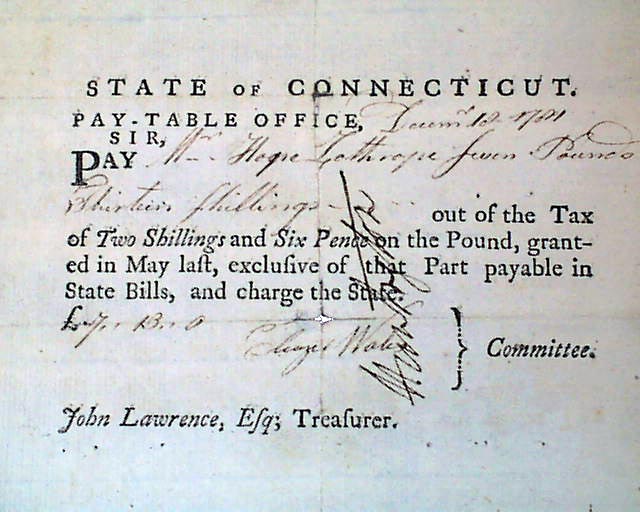 STATE OF CONNECTICUT.
PAY-TABLE OFFICE, Decemr 18 1781
SIR,
PAY Mr Hope Lothrope seven Pounds
Thirteen shillings
out of the Tax
of Two Shillings and Six Pence on the Pound, grant-
ed in May laſt, excluſive of that Part payable in
State Bills, and charge the State.
£7. 13. 0
Committee.
John Lawrence, Eſq; Treaſurer.